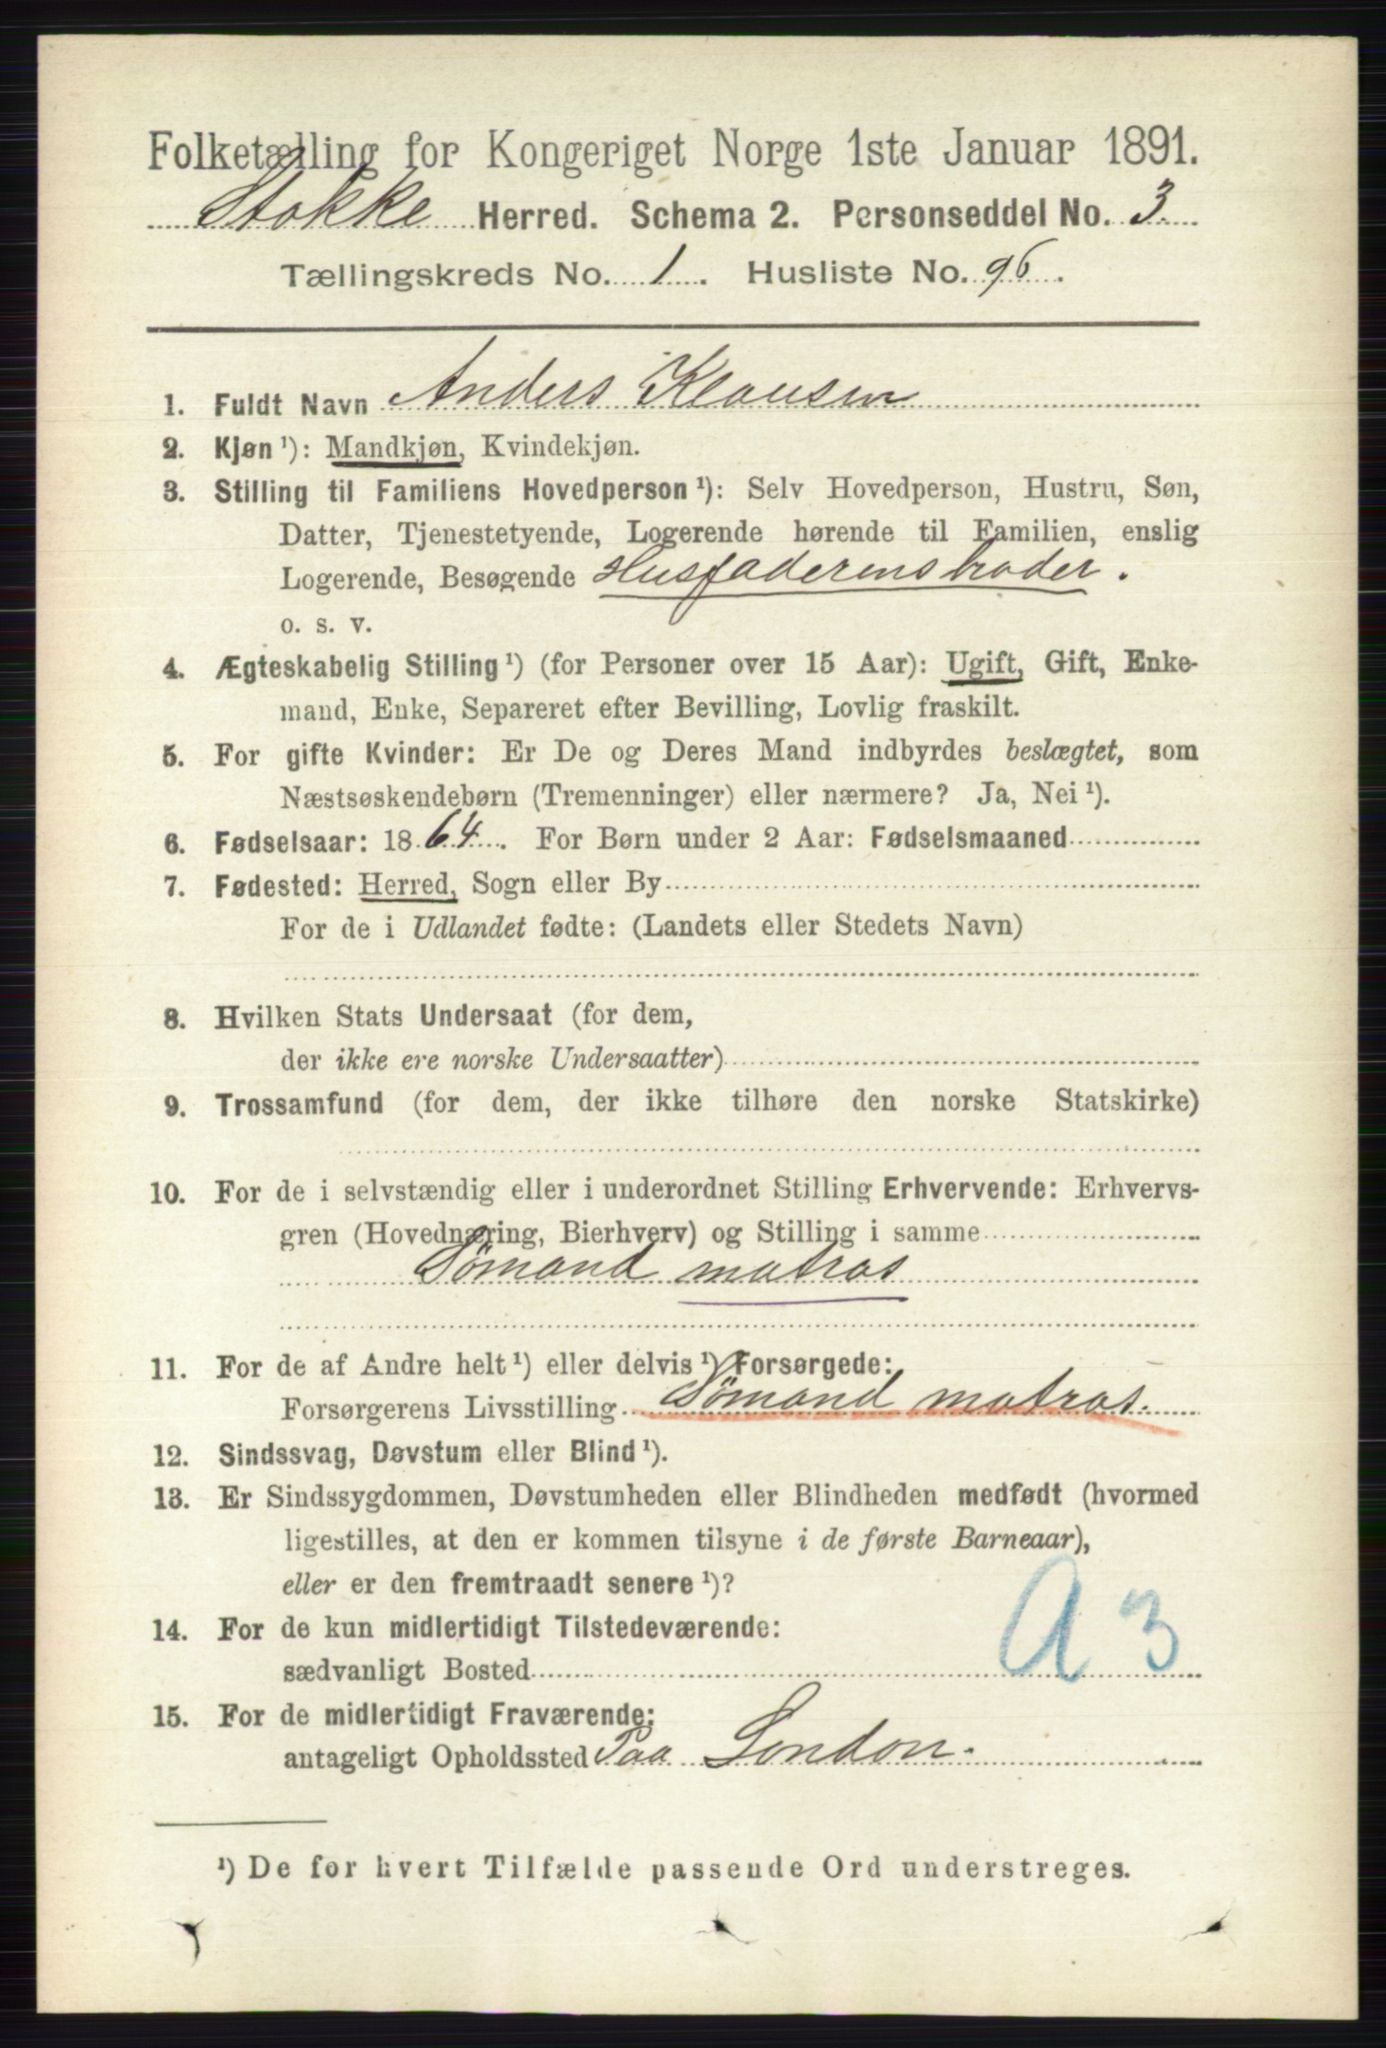 Folketælling for Kongeriget Norge 1ste Januar 1891.
Stokke Herred. Schema 2. Personseddel No. 3
Tællingskreds No. 1. Husliste No. 96.
1. Fuldt Navn Anders Klausen
2. Kjøn ¹): Mandkjøn, Kvindekjøn.
3. Stilling til Familiens Hovedperson ¹): Selv Hovedperson, Hustru, Søn,
Datter, Tjenestetyende, Logerende hørende til Familien, enslig
Logerende, Besøgende Husfaderens broder.
o. s. v.
4. Ægteskabelig Stilling ¹) (for Personer over 15 Aar): Ugift, Gift, Enke-
mand, Enke, Separeret efter Bevilling, Lovlig fraskilt.
5. For gifte Kvinder: Er De og Deres Mand indbyrdes beslægtet, som
Næstsøskendebørn (Tremenninger) eller nærmere? Ja, Nei ¹).
6. Fødselsaar: 1864. For Børn under 2 Aar: Fødselsmaaned
7. Fødested: Herred, Sogn eller By
For de i Udlandet fødte: (Landets eller Stedets Navn)
8. Hvilken Stats Undersaat (for dem,
der ikke ere norske Undersaatter)
9. Trossamfund (for dem, der ikke tilhøre den norske Statskirke)
10. For de i selvstændig eller i underordnet Stilling Erhvervende: Erhvervs-
gren (Hovednæring, Bierhverv) og Stilling i samme
Sømand matros
11. For de af Andre helt ¹) eller delvis ¹) Forsørgede:
Forsørgerens Livsstilling Sømand matros.
12. Sindssvag, Døvstum eller Blind ¹).
13. Er Sindssygdommen, Døvstumheden eller Blindheden medfødt (hvormed
ligestilles, at den er kommen tilsyne i de første Barneaar),
eller er den fremtraadt senere ¹)?
A 3
14. For de kun midlertidigt Tilstedeværende:
sædvanligt Bosted
15. For de midlertidigt Fraværende:
antageligt Opholdssted Paa London.
¹) De for hvert Tilfælde passende Ord understreges.